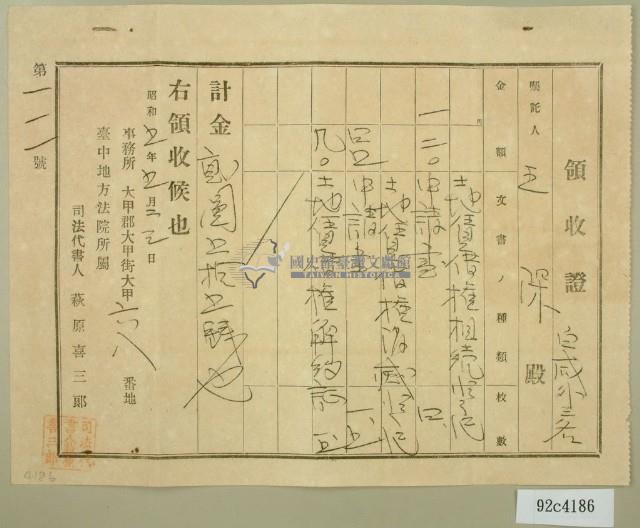 領收證
白威外三名
囑託人 王 深 殿
金額 文書ノ種類 枚數
圓
土地賃借權相続登記
一 二〇 申請書 四
土地賃借權消滅登記
申請書 一、五
九〇 土地賃借權解約 五
計金 貳圓五拾五錢也
右領收候也
昭和五年五月二三日
事務所 大甲郡大甲街大甲 六六八 番地
臺中地方法院所屬
司法代書人 萩原喜三郎
第一一一號
國史館臺灣文獻館
TAIWAN HISTORICA
4186
92c4186